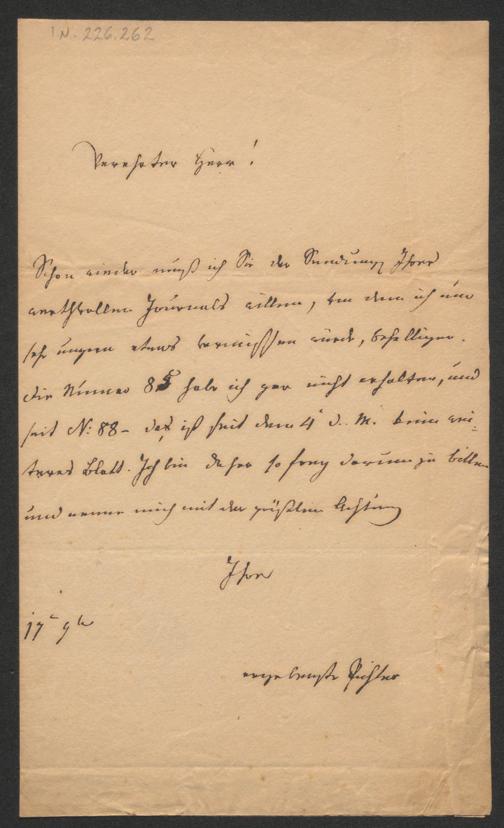 IN. 226.262
Verehrter Herr!
Schon wieder muß ich Sie der Sendung Ihres
werthvollen Journals willen, von dem ich nur
sehr ungern etwas vermissen würde, behelligen.
Die Numer 85 habe ich gar nicht erhalten, und
seit N: 88 – das ist seit dem 4 d. M. kein wei-
teres Blatt. Ich bin daher so frey darum zu bitten
und nenne mich mit der größten Achtung
Ihre
17 9b
ergebenste Pichler